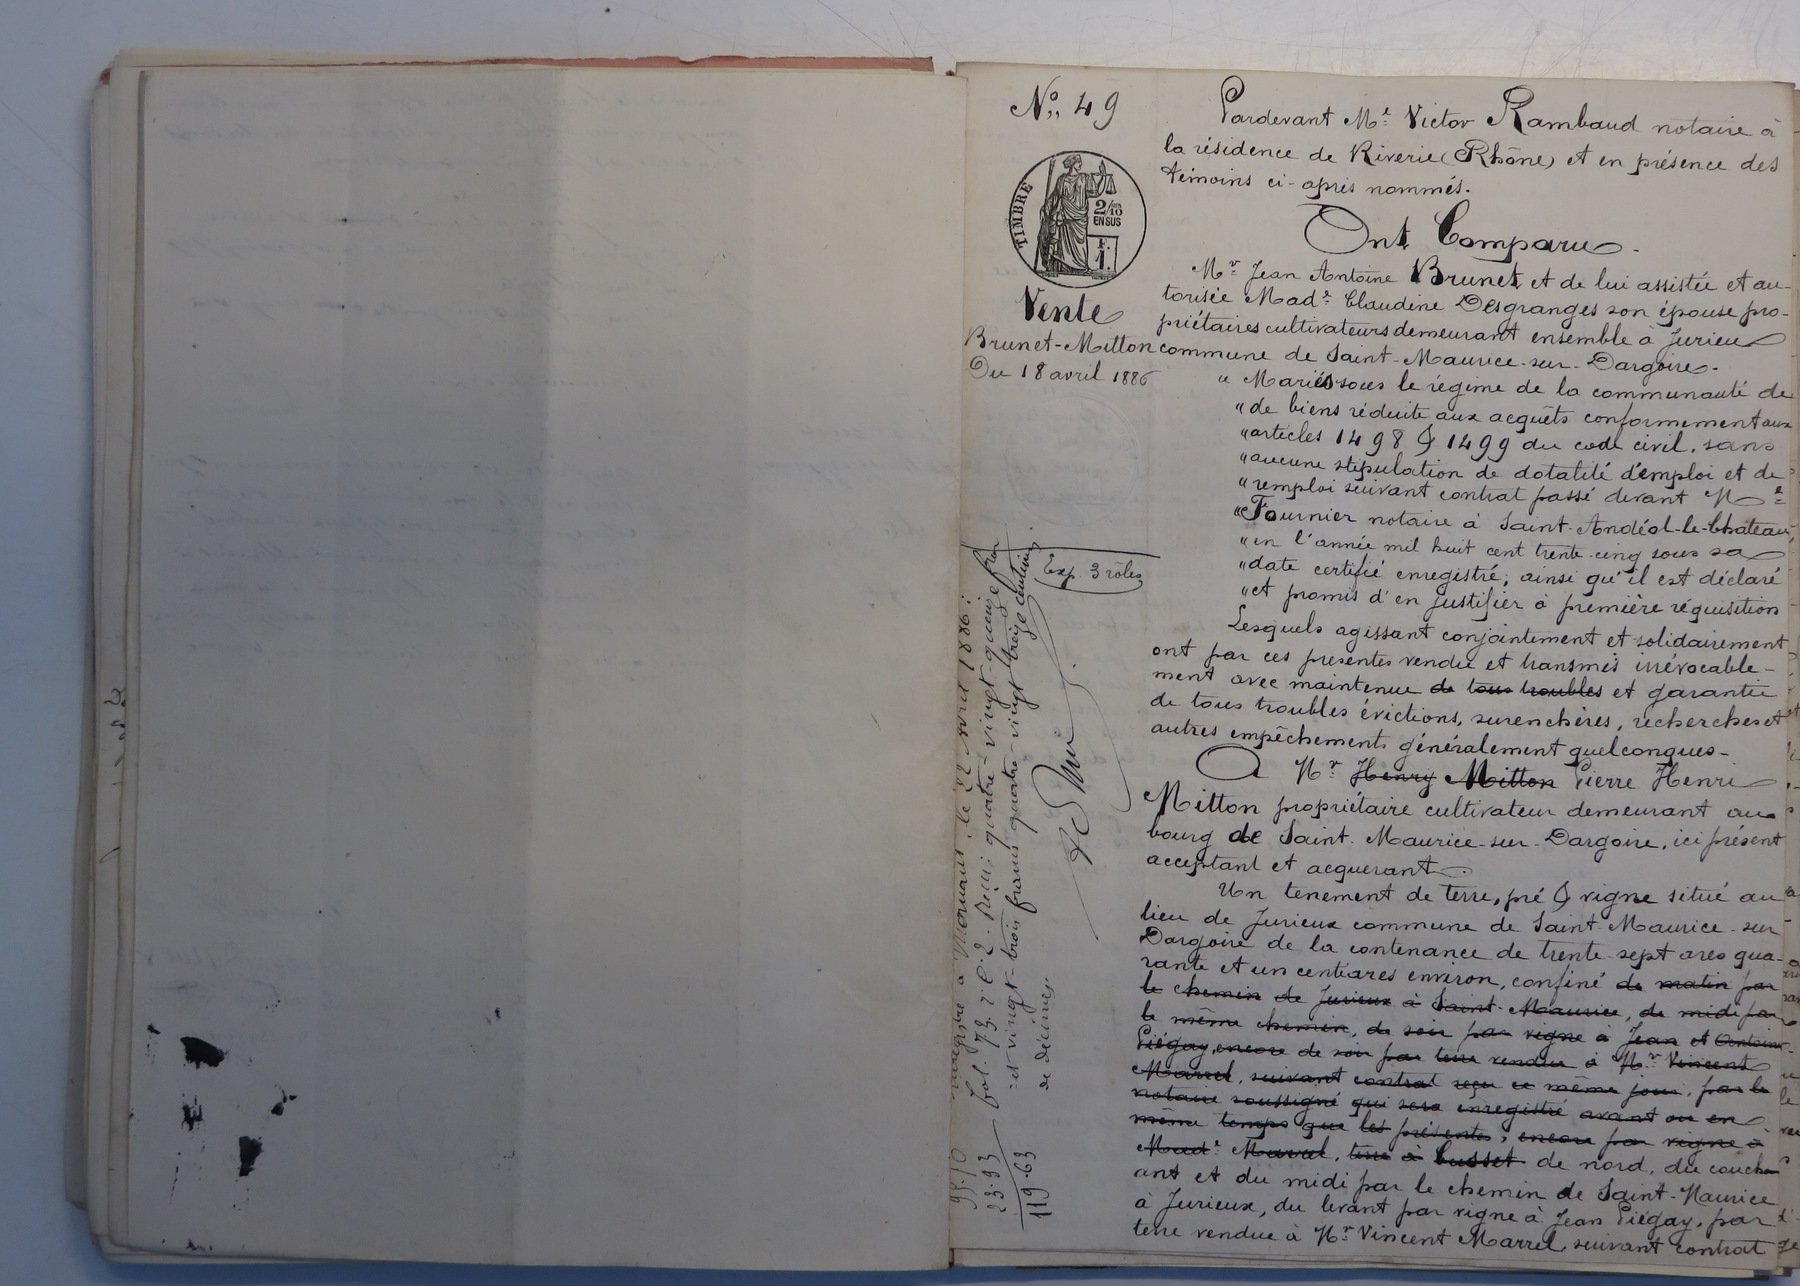 N° 49
TIMBRE
2/10
EN SUS
F.
1.
Vente
Brunet-Mitton
Du 18 avril 1886
Exp. 3 rôles
Pardevant Me Victor Rambaud notaire à
la résidence de Riverie (Rhône) et en présence des
témoins ci-après nommés.
Ont Comparu.
Mr Jean Antoine Brunet, et de lui assistée et au-
torisée Made Claudine Desgranges son épouse pro-
priétaires cultivateurs demeurant ensemble à Jurieu
commune de Saint-Maurice-sur-Dargoire.
" Mariés sous le régime de la communauté de
" de biens réduite aux acquêts conformement aux
" articles 1498 & 1499 du code civil, sans
" aucune stipulation de dotalité d'emploi et de
" remploi suivant contrat passé devant Me
" Fournier notaire à Saint-Andéol-le-Château,
" en l'année mil huit cent trente-cinq sous sa
" date certifié enregistré; ainsi qu'il est déclaré
" et promis d'en justifier à première réquisition
Lesquels agissant conjointement et solidairement
ont par ces presentes vendu et transmis irrévocable-
ment avec maintenue de tous troubles et garantie
de tous troubles évictions, surenchères, recherches et
autres empêchements généralement quelconques-
A Mr Henry Mitton Pierre Henri
Mitton propriétaire cultivateur demeurant au
bourg de Saint-Maurice-sur-Dargoire, ici présent
acceptant et acquerant.
Un tenement de terre, pré & vigne situé au
lieu de Jurieux commune de Saint-Maurice-sur
Dargoire de la contenance de trente-sept ares qua-
rante et un centiares environ, confiné de matin par
le chemin de Jurieux à Saint-Maurice, de midi par
le même chemin, de soir par vigne à Jean et Antoine
Piégay, encore de soir par terre vendue à Mr Vincent
Marrel, suivant contrat reçu ce même jour, par le
notaire soussigné qui sera enregistré avant ou en
même temps que les présentes, encore par vigne à
Made Marrel, terre à Busset de nord, du couch-
ant et du midi par le chemin de Saint-Maurice
à Jurieux, du levant par vigne à Jean Piégay, par
terre vendue à Mr Vincent Marrel, suivant contrat
Enregistré à Mornant, le 22 Avril 1886:
fol. 73. r. C. 2. Reçu: quatre-vingt-quinze fran
et vingt-trois francs quatre-vingt treize centimes
de décimes.
95.70
23.93
119.63